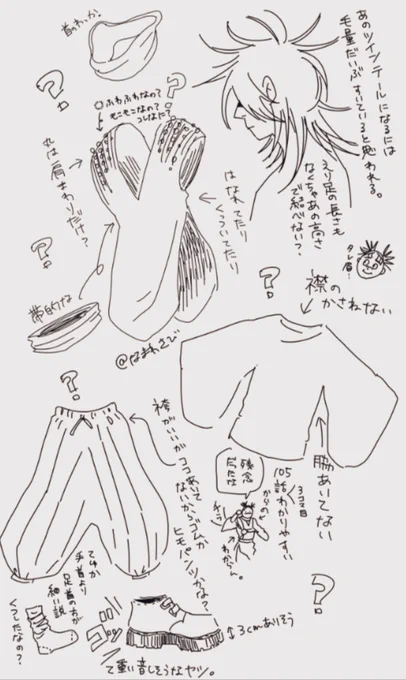 首のわっか。
あのツインテールになるには
毛量だいぶすいていると思われる。
?
?
○ふわふわなの?
モニモニなの?
コレなに?
えり足の長さも
なくちゃあの高さ
で結べない?
丸は肩まわりだけ?
はなれてたり
くっついてたり
タレ眉…
?
帯的な
?
襟の
かさねない
@なまわさび
?
袴がいいが
ココあいて
ないからゴムか
ヒモパンツかな?
脇あいてない
残念
だったな
105話わかりやすい
3コマ目
チラ
わからん。
てゆか
手首より
足首の方が
細い説
くつしたなの?
?
ゴッ
3cmありそう
て重い音しそうなヤツ。